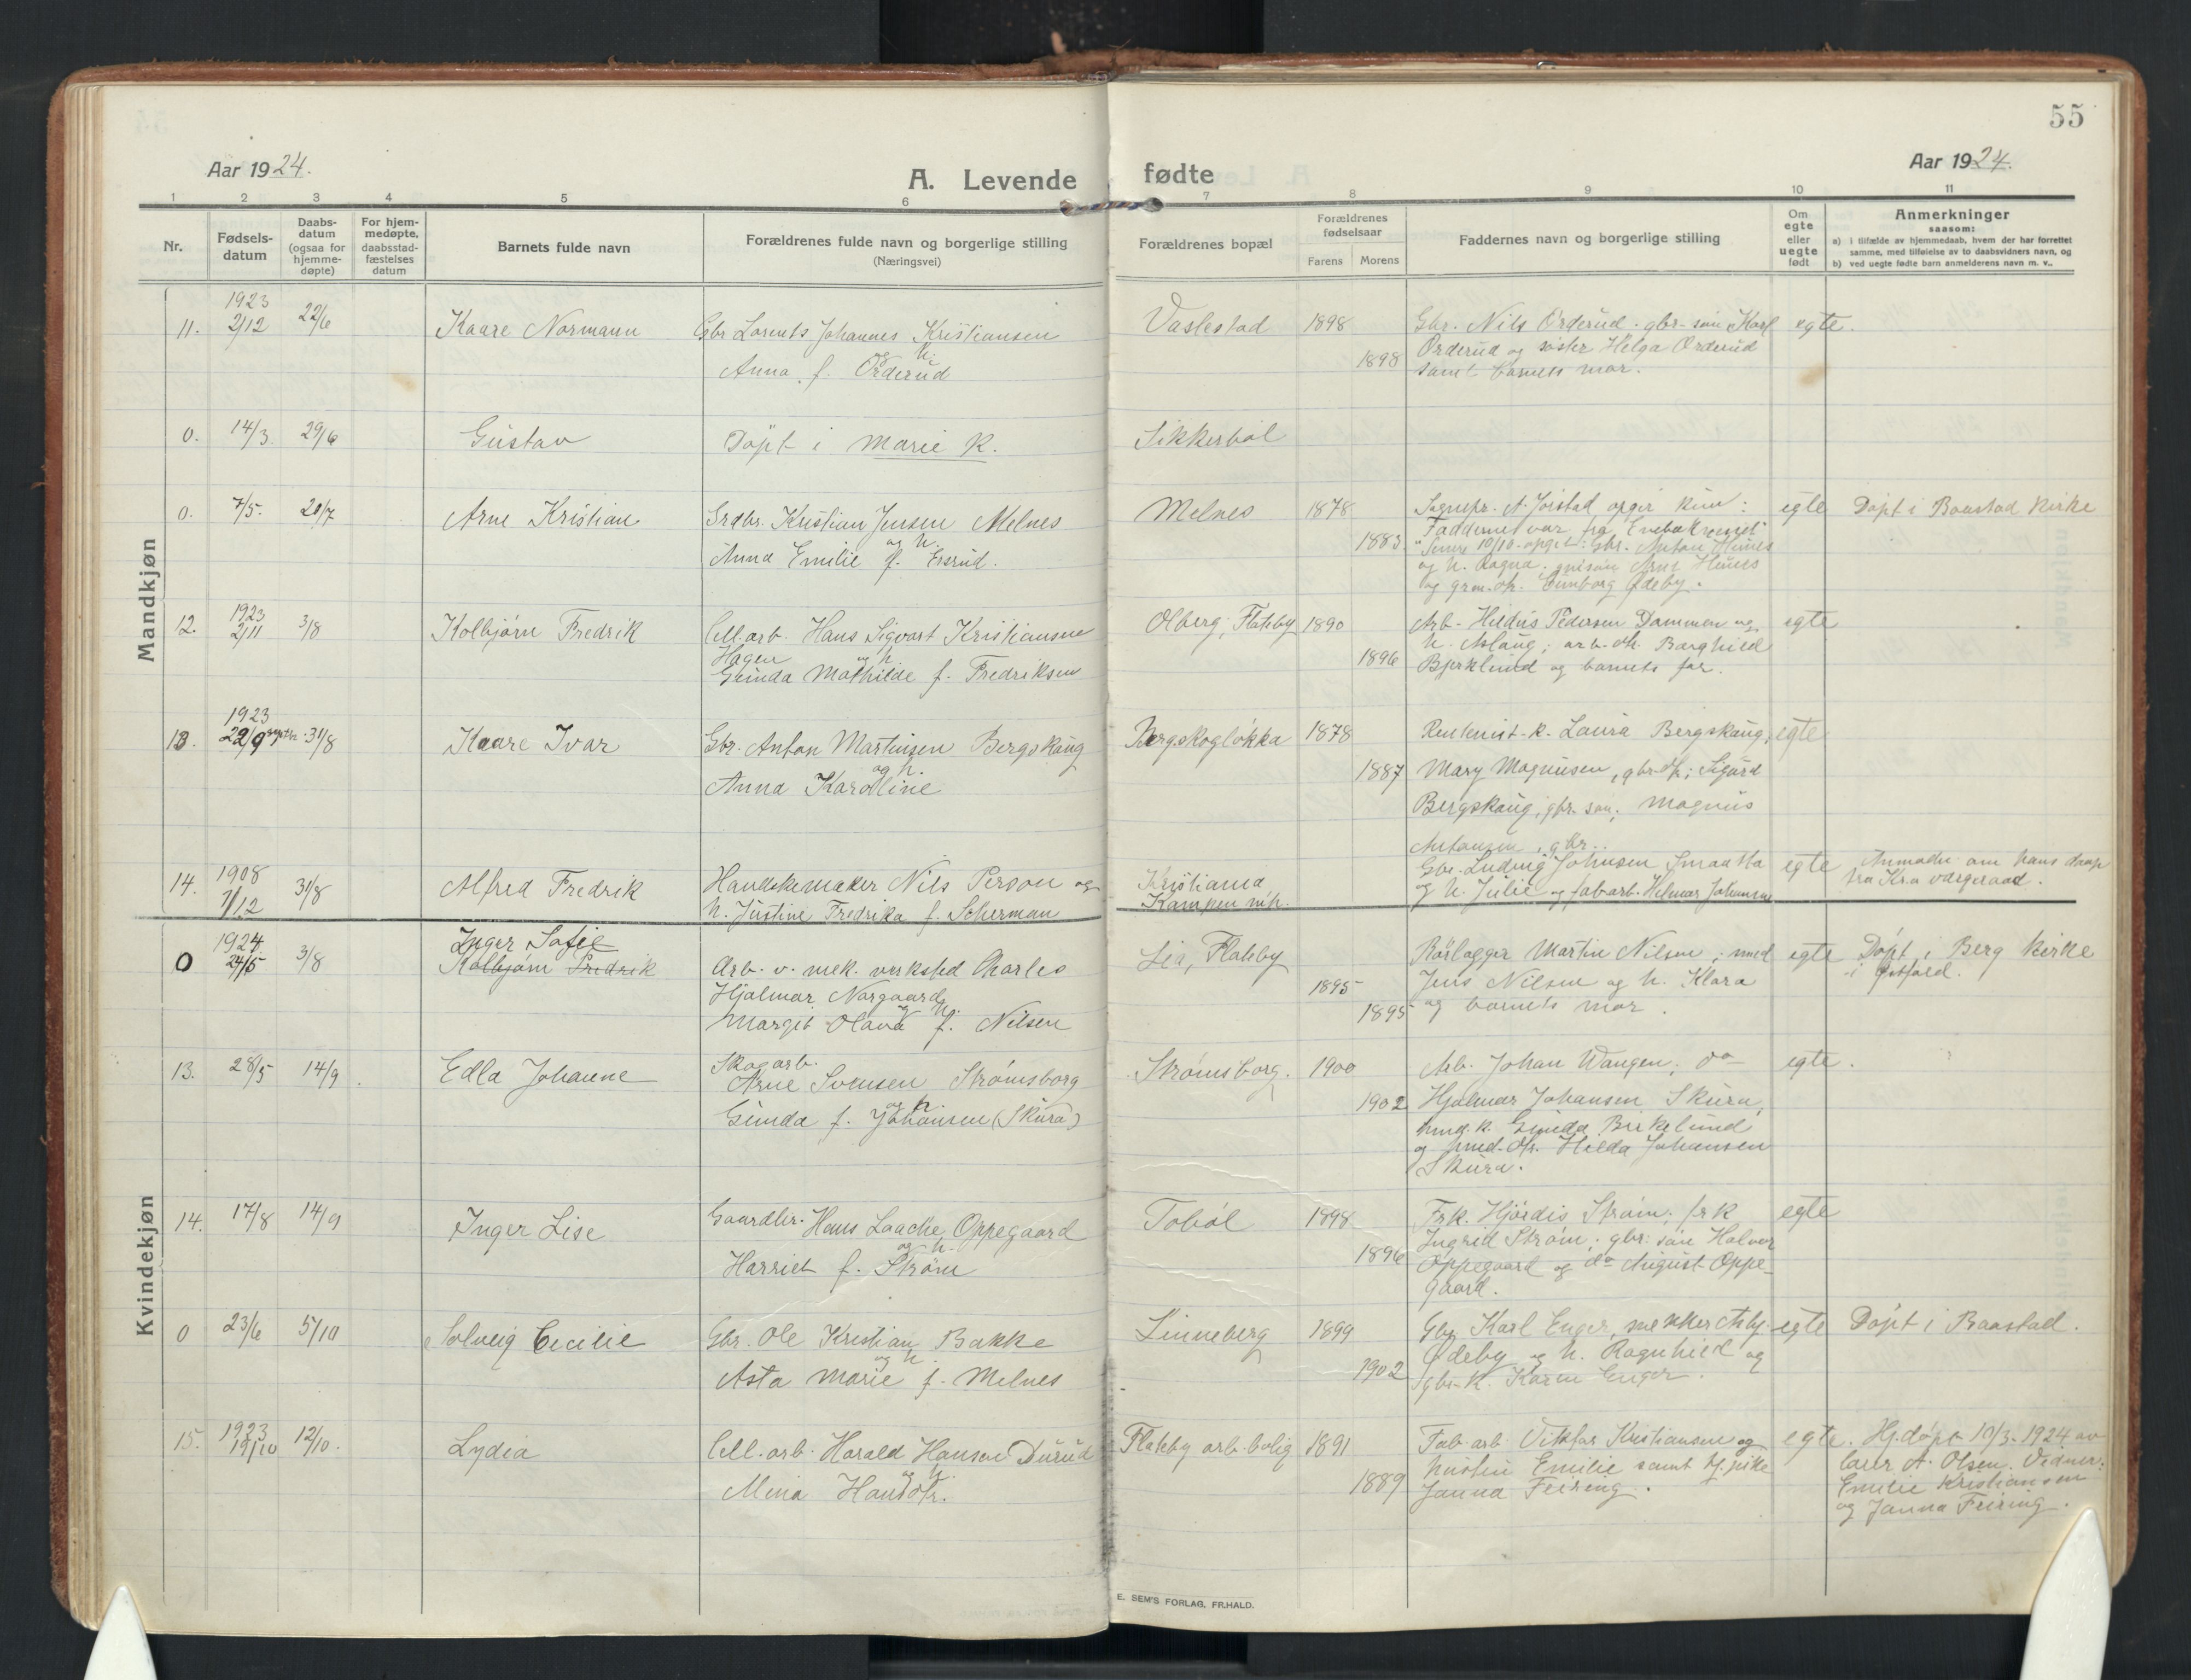 55
Aar 1924.
A. Levende
fødte
Aar 1924.
1 2 3 4 5 6 7 8 9 10 11
Nr.
Fødsels-
datum
Daabs-
datum
(ogsaa for
hjemme-
døpte)
For hjem-
medøpte,
daabsstad-
fæstelses
datum
Barnets fulde navn
Forældrenes fulde navn og borgerlige stilling
(Næringsvei)
Forældrenes bopæl
Forældrenes
fødselsaar
Farens Morens
Faddernes navn og borgerlige stilling
Om
egte
eller
uegte
født
Anmerkninger
saasom:
a) i tilfælde av hjemmedaab, hvem der har forrettet
samme, med tilføielse av to daabsvidners navn, og
b) ved uegte fødte barn anmelderens navn m. v..
Mandkjøn
11. 1923 2/12 22/6 Kaare Normann
Gbr Lorents Johannes Kristiansen
og h.
Anna f. Orderud
Vaslestad 1898 1898
Gbr. Nils Orderud. gbr. søn Karl
Orderud og søster Helga Orderud
samt barnets mor.
egte.
0. 14/3 29/6 Gustav
Døpt i Marie K.
Sikkerbøl
0. 7/5. 20/7 Arne Kristian
Grdbr. Kristian Jensen Melnes
og h.
Anna Emilie f. Eisrud.
Melnes 1878 1883.
Sognepr. A. Joistad opgir kun:
Fadderne var fra Enebak
Senere 10/10 opgit: Gbr. Anton
og h. Ragna.
og Ødeby.
egte
Døpt i Baastad Kirke
12. 1923 2/11 3/8 Kolbjørn Fredrik
Cell.arb. Hans Sigvart Kristiansen
Hagen og h.
Gunda Mathilde f. Fredriksen
Olberg, Flateby 1890 1896
Arb. Pedersen Dammen og
h. Aslaug; arb. dtr. Borghild
Bjerklund og barnets far.
egte
13. 1923 22/9 31/8 Kaare Ivar
Gbr. Anton Martinsen Bergskaug
og h.
Anna Karoline
Bergskogløkka 1878 1887
Laura Bergskaug,
Mary Magnusen, gbr. dtr; Sigurd
Bergskaug, gbr. søn; Magnus
Antonsen, gbr..
egte
14. 1908 7/12 31/8 Alfred Fredrik
Handskemaker Nils Person og
h. Justine Fredrika f. Scherman
Kristiania
Kampen mh.
Gbr. Ludvig Johnsen Smaatta
og h. Julie og fab.arb. Helmer Johansen
egte
Anmodn. om hans daap
fra Kra vargeraad.
Kvindekjøn
0 1924 24/5 3/8 Inger Sofie
Kolbjørn Fredrik
Arb. v. mek. verksted Charles
Hjalmar Norgaard
og h.
Margit Olava f. Nilsen
Lia, Flateby 1895 1895
Rørlægger Martin Nilsen; smed
Jens Nilsen og h. Klara
og barnets mor.
egte
Døpt i Berg kirke
i Østfold.
13. 28/5 14/9. Edla Johanne
Skogarb.
Arne Svensen Strømsborg
og h.
Gunda f. Johansen (Skura)
Strømsborg. 1900 1902
Arb. Johan Wangen; do
Hjalmar Johansen Skura,
smed.k. Gunda Birkelund
og smed. dtr. Hilda Johansen
Skura.
egte.
14. 17/8 14/9 Inger Lise
Gaardbr. Hans Laache Oppegaard
og h.
Harriet f. Strøm
Tobøl 1898 1896
Frk. Hjørdis Strøm; frk
Ingrid Strøm; gbr. søn Halvor
Oppegaard og do August Oppe-
gaard.
egte
0 23/6 5/10 Solveig Cecilie
Gbr. Ole Kristian Bakke
og h.
Asta Marie f. Melnes
Linneberg 1899 1902
Gbr. Karl Enger, snekker Asbj.
Ødeby og h. Ragnhild og
gbr.k. Karen Enger.
egte
Døpt i Baastad.
15. 1923 19/10 12/10. Lydia
Cell.arb. Harald Hansen Durud
og h.
Mina Hansdtr.
Flateby arb.bolig 1891 1889
Fab.arb. Viktor Kristiansen og
hustru Emilie samt tj.pike
Janna Feiring.
egte.
Hj.døpt 19/3-1924 av
lærer A. Olsen. Vidner:
Emilie Kristiansen
og Janna Feiring.
E. SEM'S FORLAG, FR.HALD.